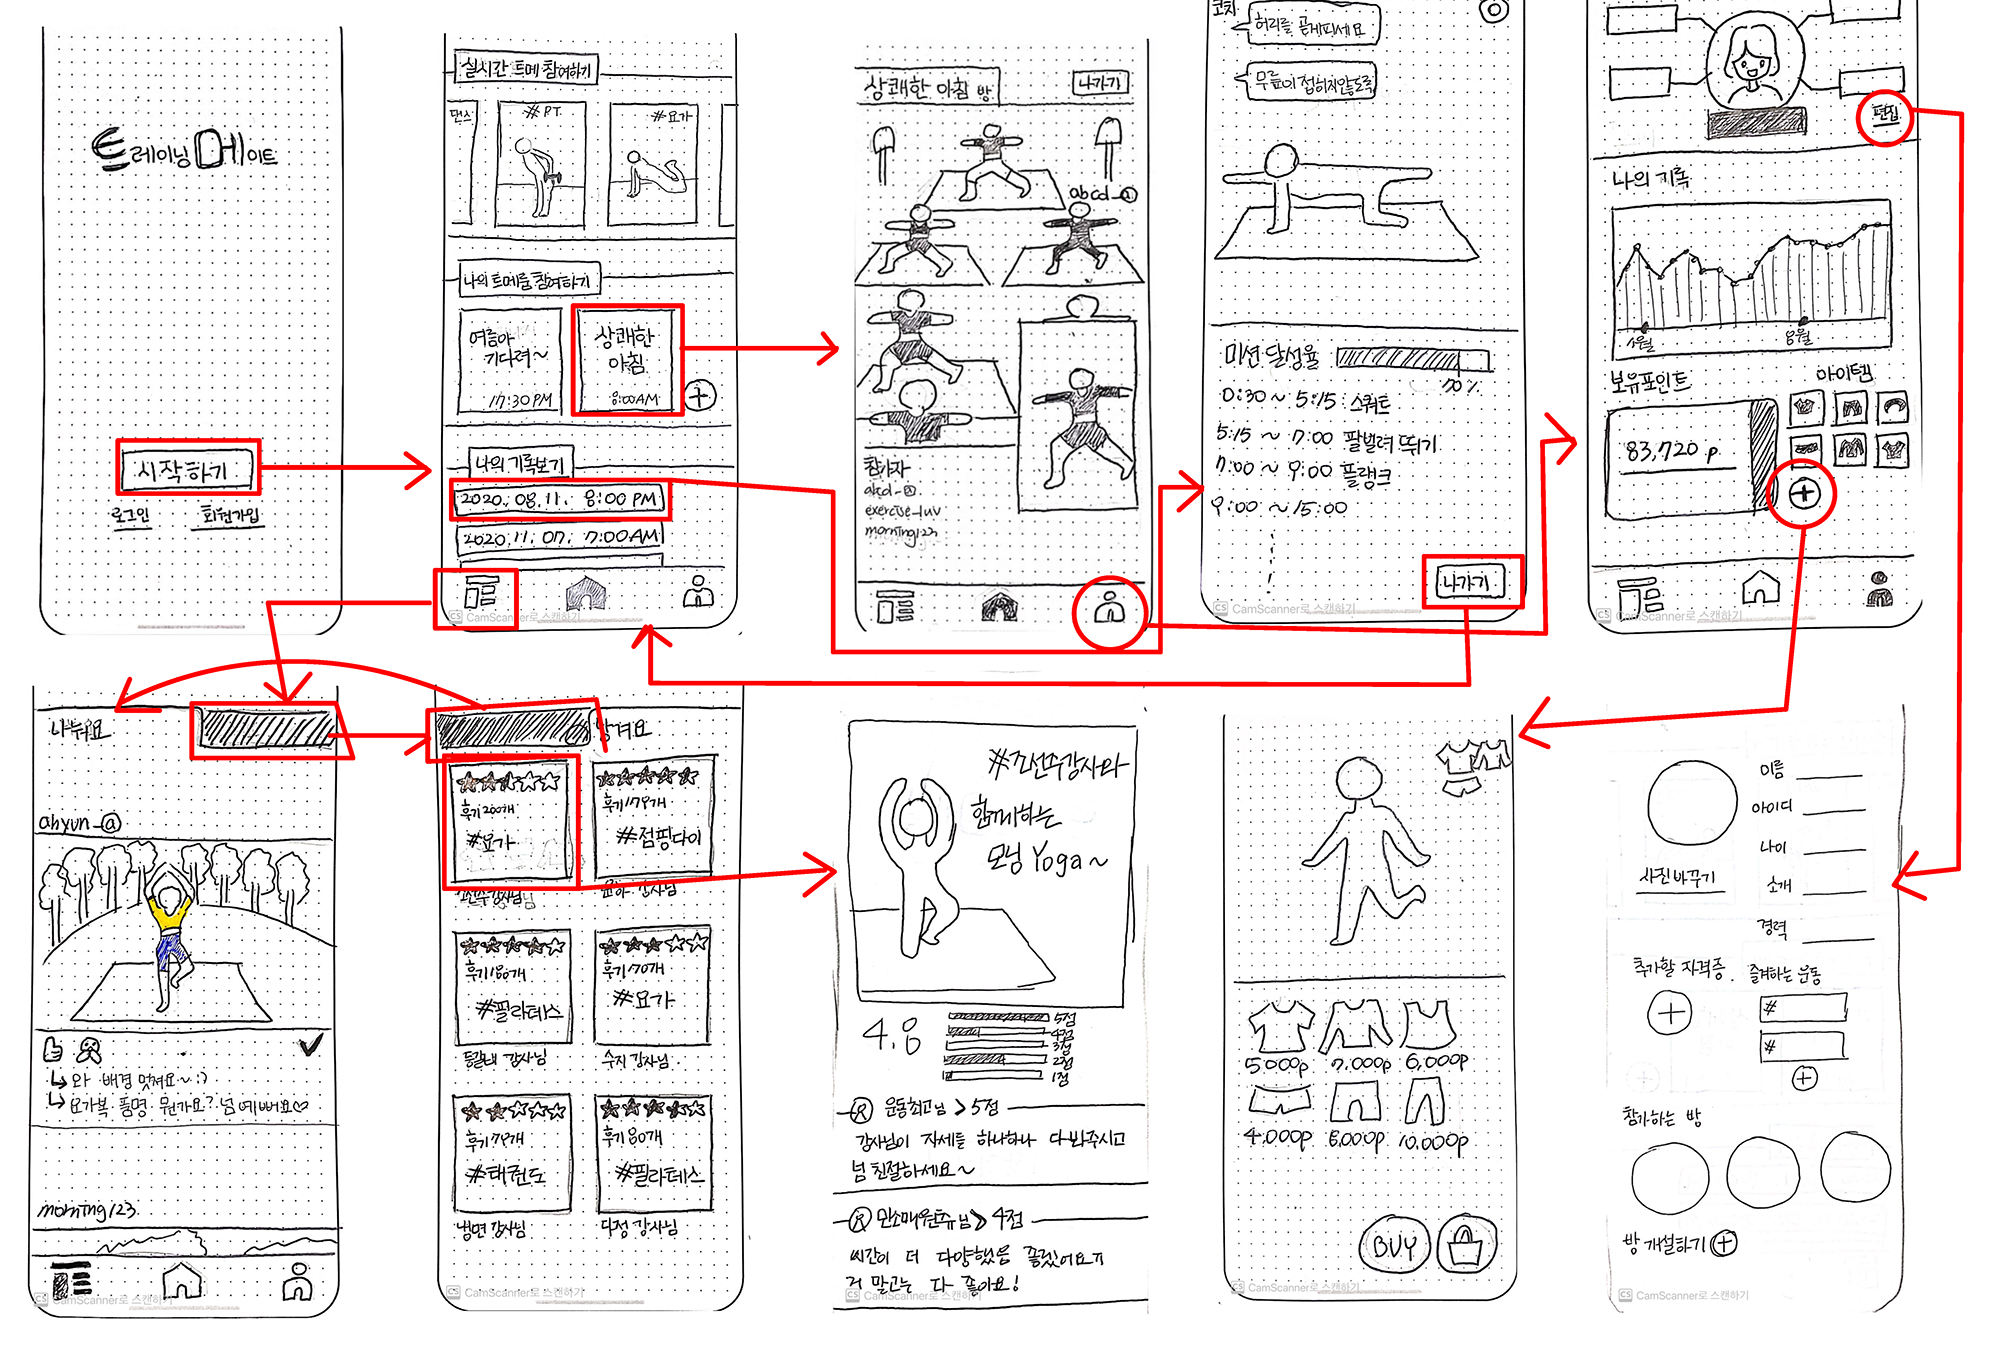 트레이닝메이트
시작하기
로그인 회원가입
실시간 트메 참여하기
댄스 #PT #요가
나의 트메룸 참여하기
여름아
기다려~
17:30 PM
상쾌한
아침
8:00AM
나의 기록보기
2020. 08. 11. 8:00 PM
2020. 11. 07. 7:00 AM
CS CamScanner로 스캔하기
상쾌한 아침 방 나가기
abcd_a
참가자
abcd_a
exercise_luv
morning123
코치
허리를 곧게피세요
무릎이 접히지않도록
미션 달성율
70%
0:30 ~ 5:15 스쿼트
5:15 ~ 7:00 팔벌려 뛰기
7:00 ~ 9:00 플랭크
9:00 ~ 15:00
나가기
CS CamScanner로 스캔하기
편집
나의 기록
8월
보유포인트 아이템
83,720 p
CS CamScanner로 스캔하기
나눠요
ahyun_a
와 배경 멋져요~:)
요가복 품명 뭔가요? 넘 예뻐요♡
morning123
CS CamScanner로 스캔하기
당겨요
후기 200개
#요가
후기 179개
#점핑다이
윤아 강사님
후기 180개
#필라테스
후기 170개
#요가
수지 강사님
후기 79개
#태권도
냉면 강사님
후기 80개
#필라테스
다정 강사님
CS CamScanner로 스캔하기
함께하는
모닝 Yoga~
4.8
5점
4점
3점
2점
1점
운동최고님 > 5점
강사님이 자세를 하나하나 다 봐주시고
넘 친절하세요~
4점
시간이 더 다양했음 좋겠어요
거 말고는 다 좋아요!
CS CamScanner로 스캔하기
5,000p 7,000p 6,000p
4,000p 8,000p 10,000p
BUY
CS CamScanner로 스캔하기
이름
아이디
나이
소개
경력
사진바꾸기
추가할 자격증. 즐겨하는 운동
#
#
참가하는 방
방 개설하기
CS CamScanner로 스캔하기